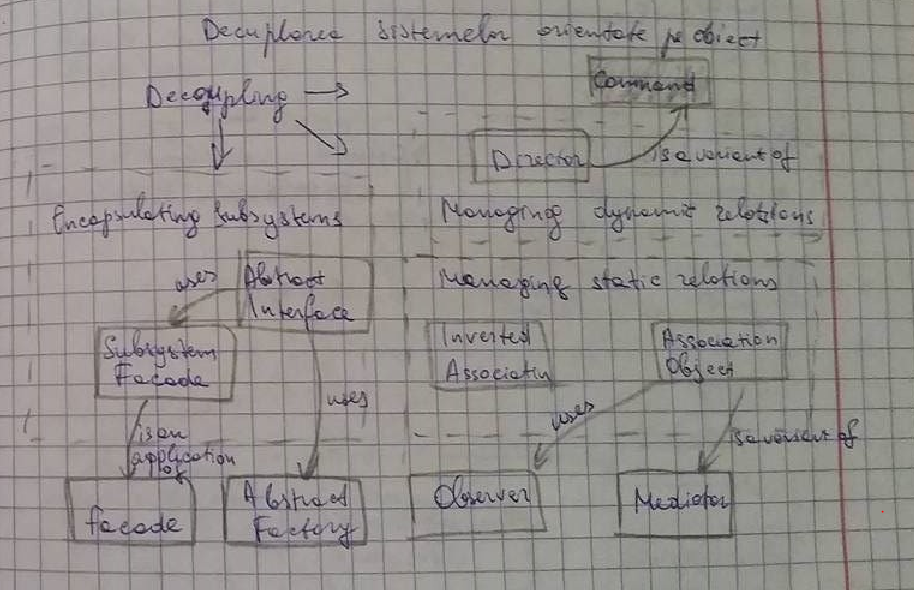 Decuplarea sistemelor orientate pe obiect
Decoupling
Command
Director
is a varient of
Encapsulating Subsystems
Managing dynamic relations
uses
Abstract
Interface
Managing static relations
Subsystem
Facade
Inverted
Associatin
Association
Object
uses
uses
is an
application
of
is a varient of
facade
Abstract
Factory
Observer
Mediator